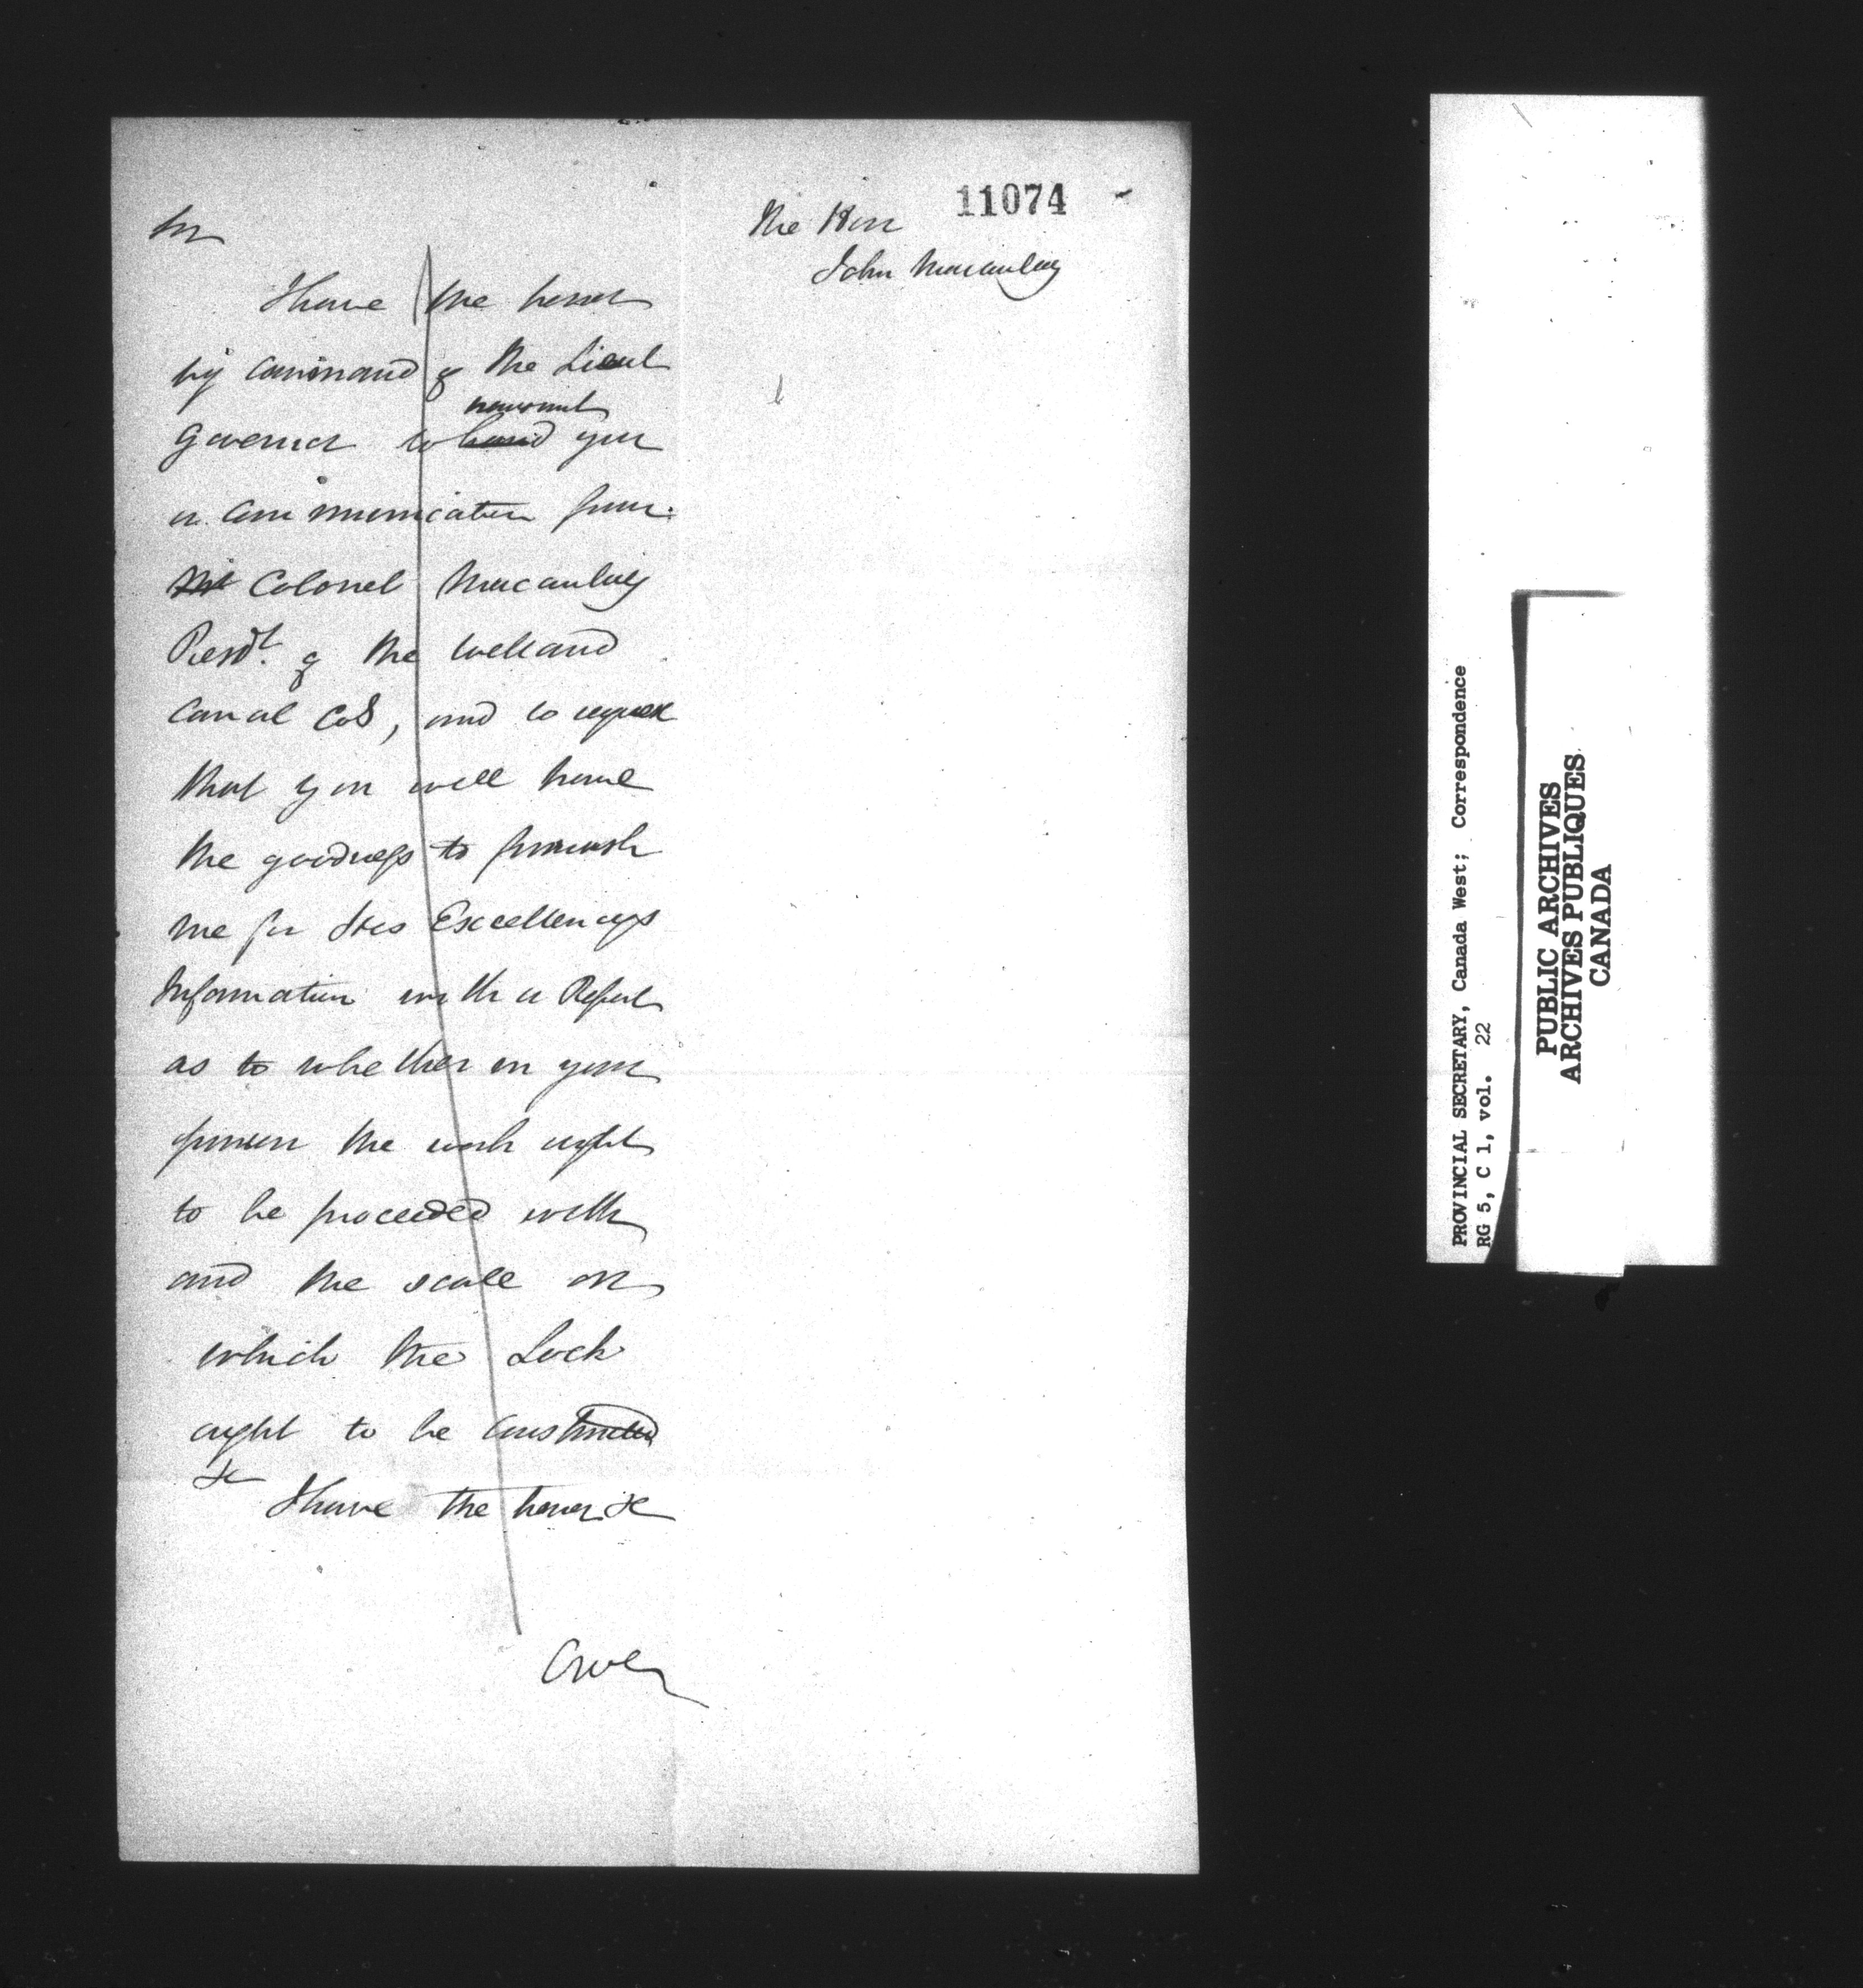 11074
The Hon
John Macaulay
Sir
I have the honor
by command of the Lieut
transmit
Governor to hand you
a communication from
Colonel Macaulay
Presdt. of the Welland
Canal Co, and to request
that you will have
the goodness to furnish
me for His Excellencys
Information with a Report
as to whether in your
opinion the work ought
to be proceeded with
and the scale on
which the Lock
ought to be constructed
&c
I have the honor &c
PROVINCIAL SECRETARY, Canada West; Correspondence
RG 5, C 1, vol. 22
PUBLIC ARCHIVES
ARCHIVES PUBLIQUES
CANADA